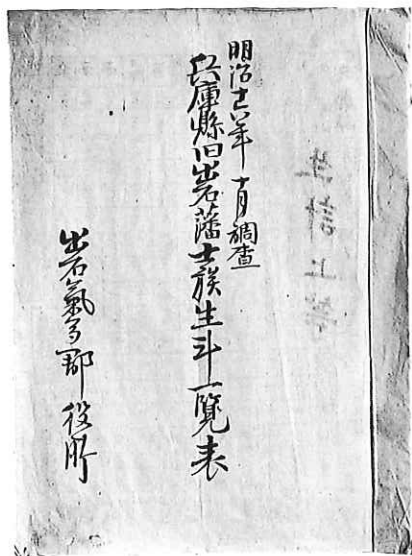 生計上等
明治十六年十月調査
兵庫縣旧出石藩士族生計一覧表
出石氣多郡役所